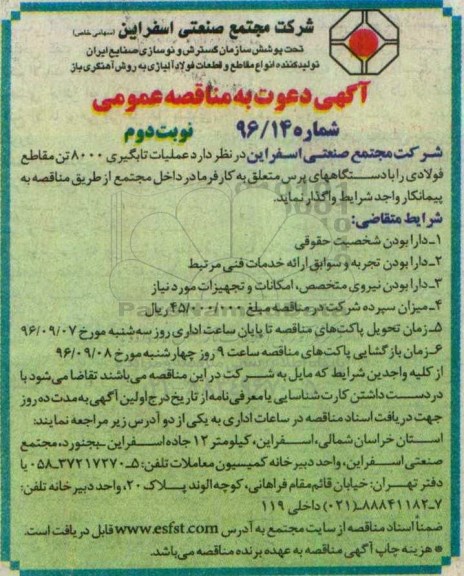 شرکت مجتمع صنعتی اسفراین (سهامی خاص)
تحت پوشش سازمان گسترش و نوسازی صنایع ایران
تولید کننده انواع مقاطع و قطعات فولاد آلیاژی به روش آهنگری باز
آگهی دعوت به مناقصه عمومی
شماره ۹۶/۱۴ نوبت دوم
شرکت مجتمع صنعتی اسفراین در نظر دارد عملیات تابگیری ۸۰۰۰ تن مقاطع
فولادی را با دستگاههای پرس متعلق به کارفرما در داخل مجتمع از طریق مناقصه به
پیمانکار واجد شرایط واگذار نماید.
شرایط متقاضی:
۱-دارا بودن شخصیت حقوقی
۲-دارا بودن تجربه و سوابق ارائه خدمات فنی مرتبط
۳-دارا بودن نیروی متخصص، امکانات و تجهیزات مورد نیاز
۴-میزان سپرده شرکت در مناقصه مبلغ ۴۵/۰۰۰/۰۰۰ ریال
۵-زمان تحویل پاکت‌های مناقصه تا پایان ساعت اداری روز سه‌شنبه مورخ ۹۶/۰۹/۰۷
۶-زمان بازگشایی پاکت‌های مناقصه ساعت ۹ روز چهارشنبه مورخ ۹۶/۰۹/۰۸
از کلیه واجدین شرایط که مایل به شرکت در این مناقصه می‌باشند تقاضا می‌شود با
در دست داشتن کارت شناسایی یا معرفی‌نامه از تاریخ درج اولین آگهی به مدت ده روز
جهت دریافت اسناد مناقصه در ساعات اداری به یکی از دو آدرس زیر مراجعه نمایند:
استان خراسان شمالی، اسفراین، کیلومتر ۱۲ جاده اسفراین-بجنورد، مجتمع
صنعتی اسفراین، واحد دبیرخانه کمیسیون معاملات تلفن: ۵-۳۷۲۱۷۲۷۰-۰۵۸ یا
دفتر تهران: خیابان قائم مقام فراهانی، کوچه الوند پلاک ۲۰، واحد دبیرخانه تلفن:
۷-۸۸۸۴۱۱۸۲(۰۲۱) داخلی ۱۱۹
ضمناً اسناد مناقصه از سایت مجتمع به آدرس www.esfst.com قابل دریافت است.
* هزینه چاپ آگهی مناقصه به عهده برنده مناقصه می‌باشد.